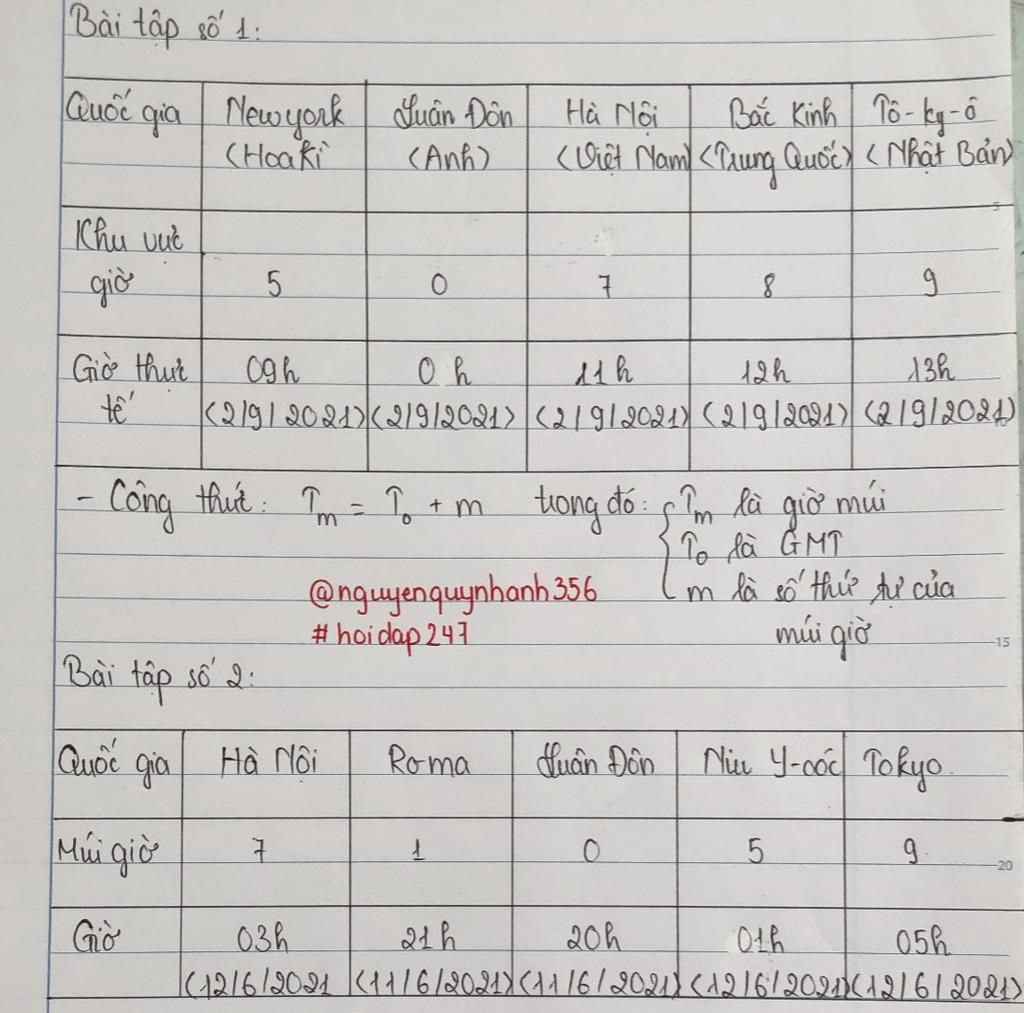 Bài tập số 1:
Quốc gia Newyork Luân Đôn Hà Nội Bắc Kinh Tô-ky-ô
(Hoa Kì (Anh) (Việt Nam) (Trung Quốc) (Nhật Bản)
Khu vực
giờ 5 0 7 8 9
Giờ thực 09h 0h 11h 12h 13h
tế (2/9/2021) (2/9/2021) (2/9/2021) (2/9/2021) (2/9/2021)
- Công thức: Tm = To + m trong đó: { Tm là giờ múi
To là GMT
@nguyenquynhanh356 m là số thứ tự của
#hoidap247 múi giờ 15
Bài tập số 2:
Quốc gia Hà Nội Roma Luân Đôn Niu Y-oóc Tokyo.
Múi giờ 7 1 0 5 9
20
Giờ 03h 21h 20h 01h 05h
(12/6/2021 (11/6/2021) (11/6/2021) (12/6/2021) (12/6/2021)